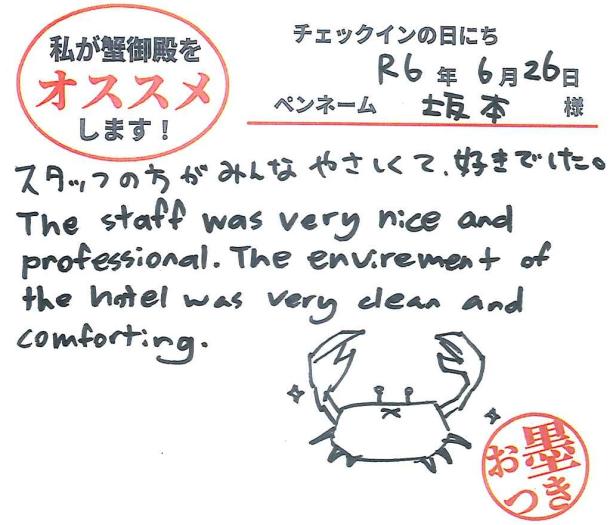 私が蟹御殿を
オススメ
します！
チェックインの日にち
R6年 6月26日
ペンネーム 坂本 様
スタッフの方がみんなやさしくて、好きでした。
The staff was very nice and
professional. The envirement of
the hotel was very clean and
comforting.
お墨
つき